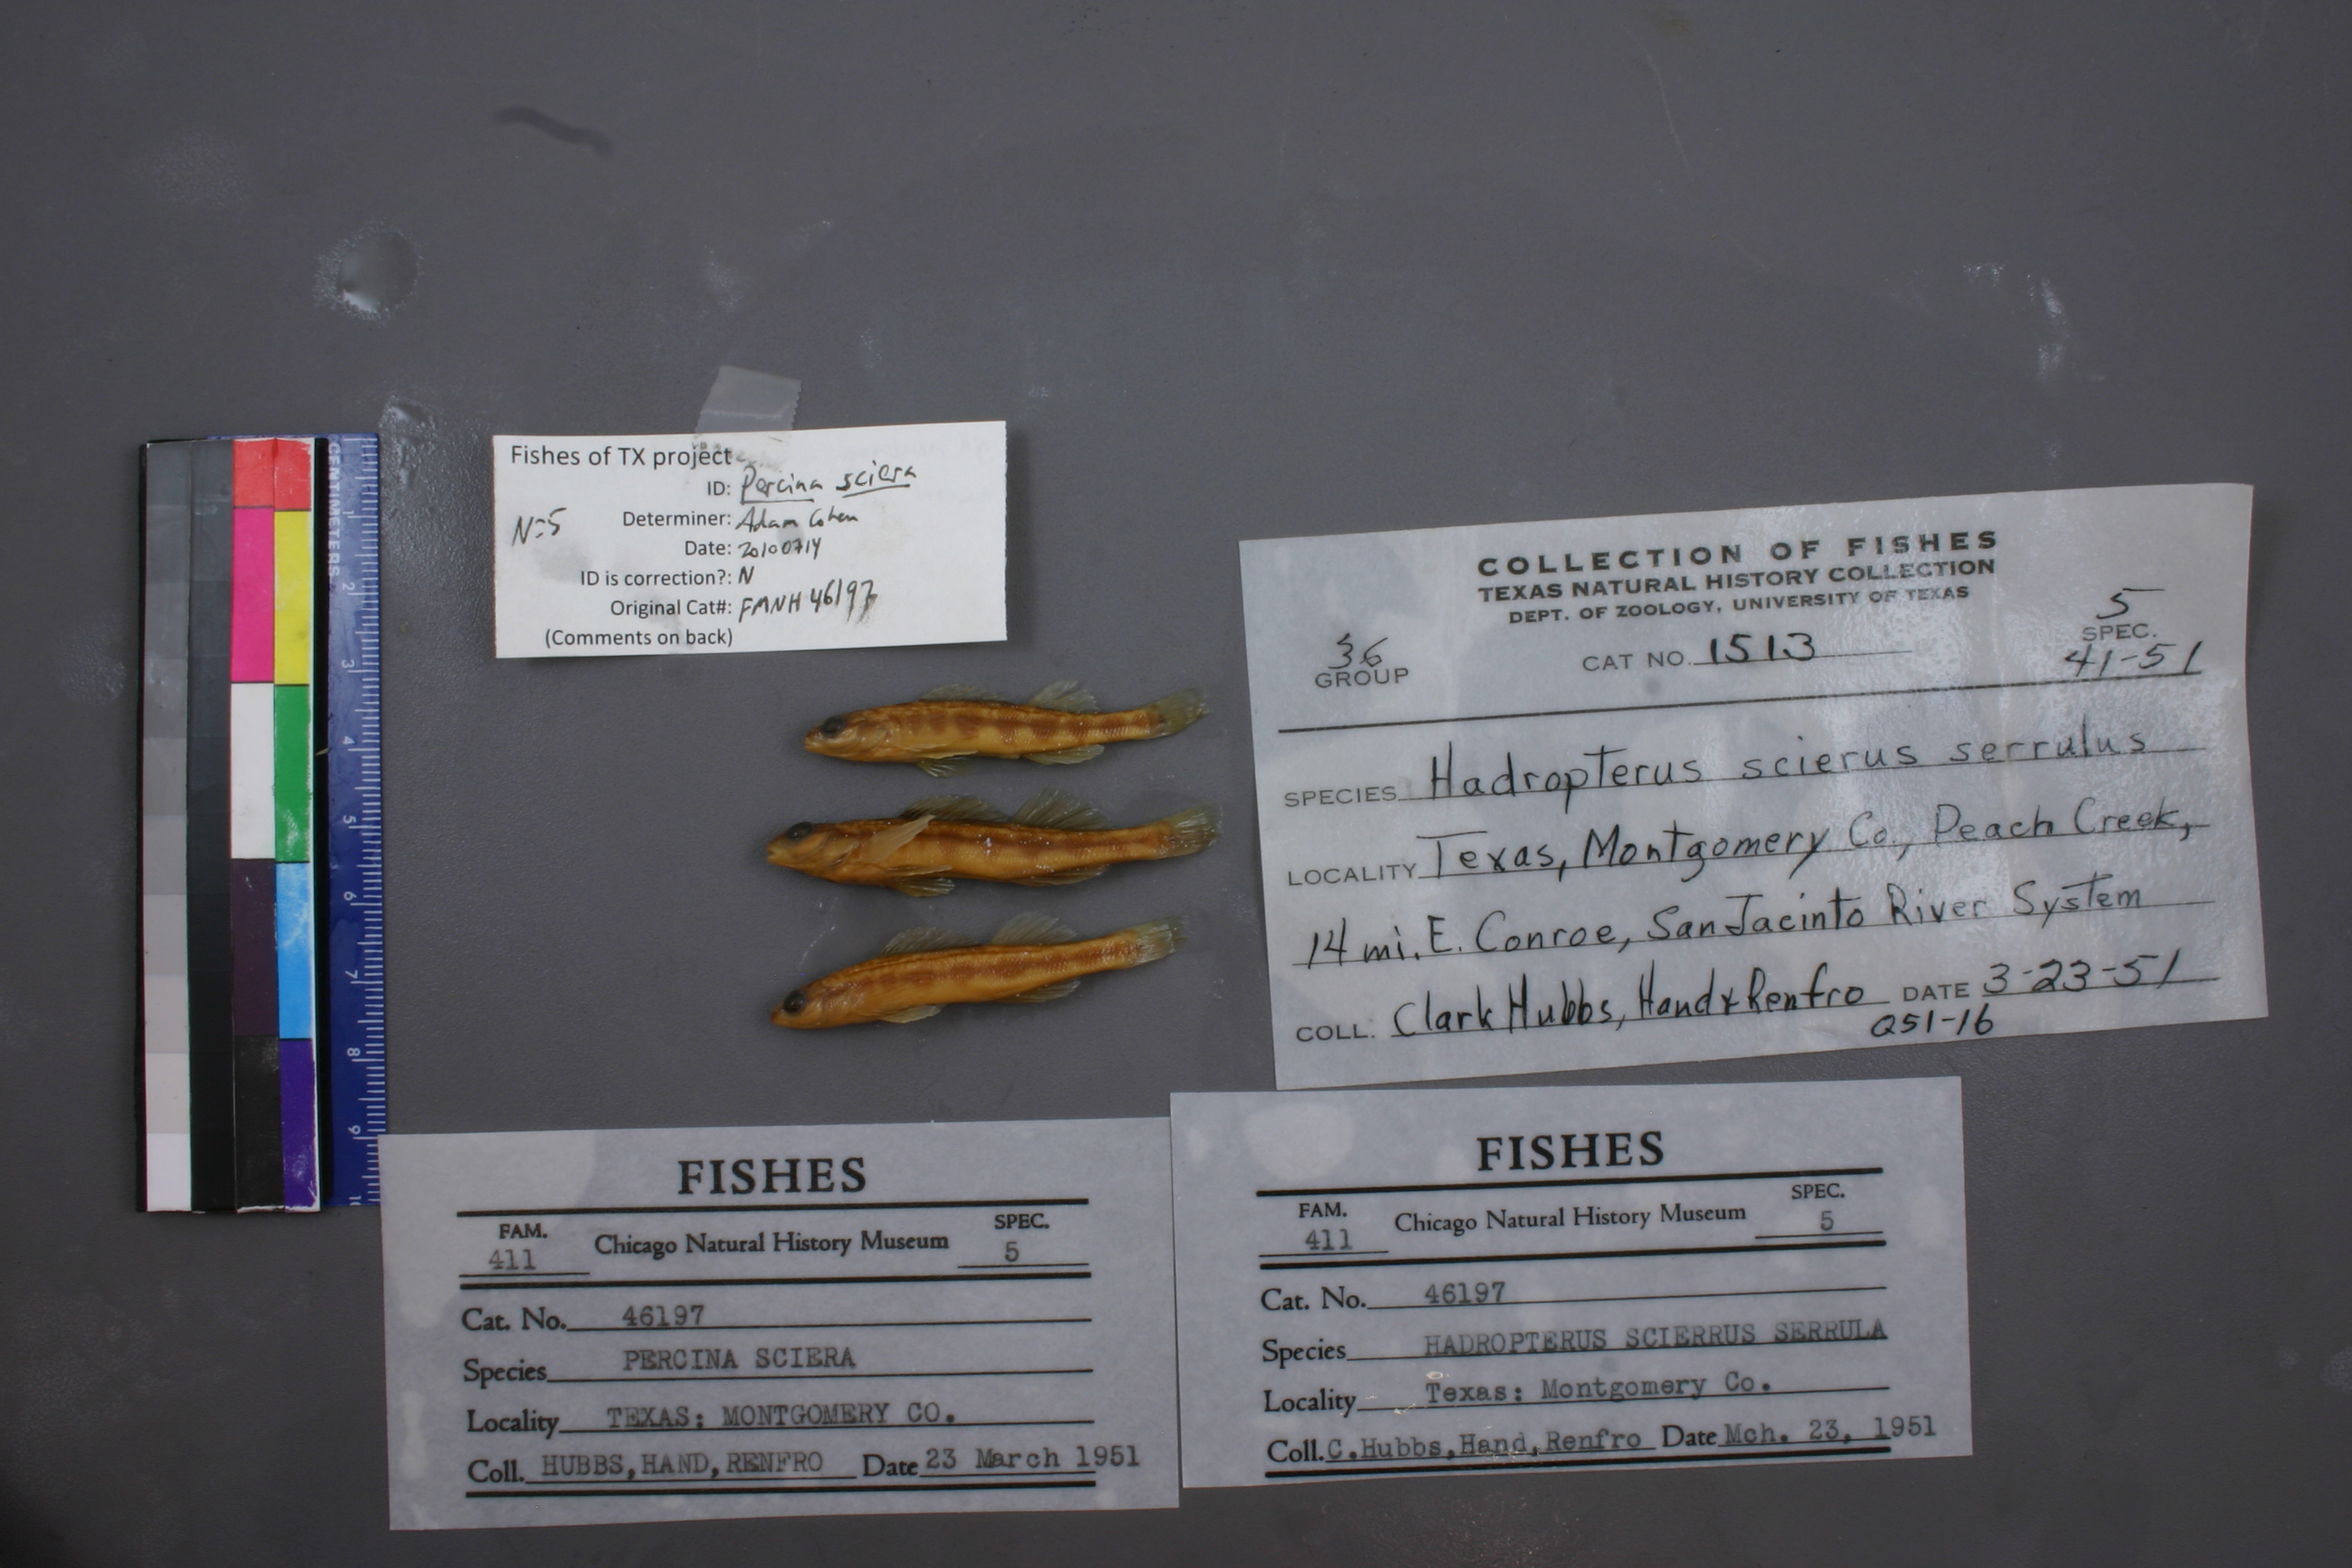 Fishes of TX project
ID: Percina sciera
N=5
Determiner: Adam Cohen
Date: 20100714
ID is correction?: N
Original Cat#: FMNH 46197
(Comments on back)
CENTIMETERS
1
2
3
4
5
6
7
8
9
COLLECTION OF FISHES
TEXAS NATURAL HISTORY COLLECTION
DEPT. OF ZOOLOGY, UNIVERSITY OF TEXAS
36
GROUP
CAT NO. 1513
5
SPEC.
41-51
SPECIES Hadropterus scierus serrulus
LOCALITY Texas, Montgomery Co., Peach Creek,
14 mi. E. Conroe, San Jacinto River System
COLL. Clark Hubbs, Hand & Renfro DATE 3-23-51
Q51-16
FISHES
FAM. Chicago Natural History Museum SPEC.
411 5
Cat. No. 46197
Species PERCINA SCIERA
Locality TEXAS: MONTGOMERY CO.
Coll. HUBBS, HAND, RENFRO Date 23 March 1951
FISHES
FAM. Chicago Natural History Museum SPEC.
411 5
Cat. No. 46197
Species HADROPTERUS SCIERRUS SERRULA
Locality Texas: Montgomery Co.
Coll. C.Hubbs, Hand, Renfro Date Mch. 23, 1951